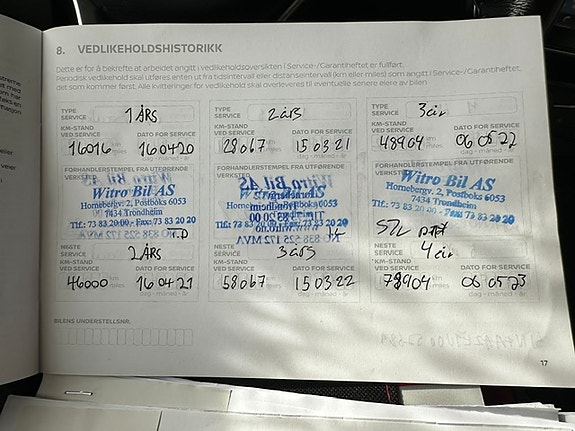 8. VEDLIKEHOLDSHISTORIKK
Dette er for å bekrefte at arbeidet angitt i vedlikeholdsoversikten i Service-/Garantiheftet er fullført.
Periodisk vedlikehold skal utføres enten ut fra tidsintervall eller distanseintervall (km eller miles) som angitt i Service-/Garantiheftet,
det som kommer først. Alle kvitteringer for vedlikehold skal overleveres til eventuelle senere eiere av bilen
TYPE SERVICE 1 ÅRS
KM-STAND VED SERVICE DATO FOR SERVICE
16016 16 04 20
dag - måned - år
FORHANDLERSTEMPEL FRA UTFØRENDE VERKSTED
Witro Bil AS
Hornebergv. 2, Postboks 6053
7434 Trondheim
Tlf.: 73 83 20 00 - Fax: 73 83 20 20
NESTE SERVICE 2 ÅRS
KM-STAND VED SERVICE DATO FOR SERVICE
46000 16 04 21
dag - måned - år
TYPE SERVICE 2 års
KM-STAND VED SERVICE DATO FOR SERVICE
28067 15 03 21
dag - måned - år
FORHANDLERSTEMPEL FRA UTFØRENDE VERKSTED
Witro Bil AS
NESTE SERVICE 3 års
KM-STAND VED SERVICE DATO FOR SERVICE
58067 15 03 22
dag - måned - år
TYPE SERVICE 3 år
KM-STAND VED SERVICE DATO FOR SERVICE
48904 06 05 22
dag - måned - år
FORHANDLERSTEMPEL FRA UTFØRENDE VERKSTED
Witro Bil AS
Hornebergv. 2, Postboks 6053
7434 Trondheim
Tlf.: 73 83 20 00 - Fax: 73 83 20 20
NESTE SERVICE 4 år
KM-STAND VED SERVICE DATO FOR SERVICE
78904 06 05 23
dag - måned - år
BILENS UNDERSTELLSNR.
17